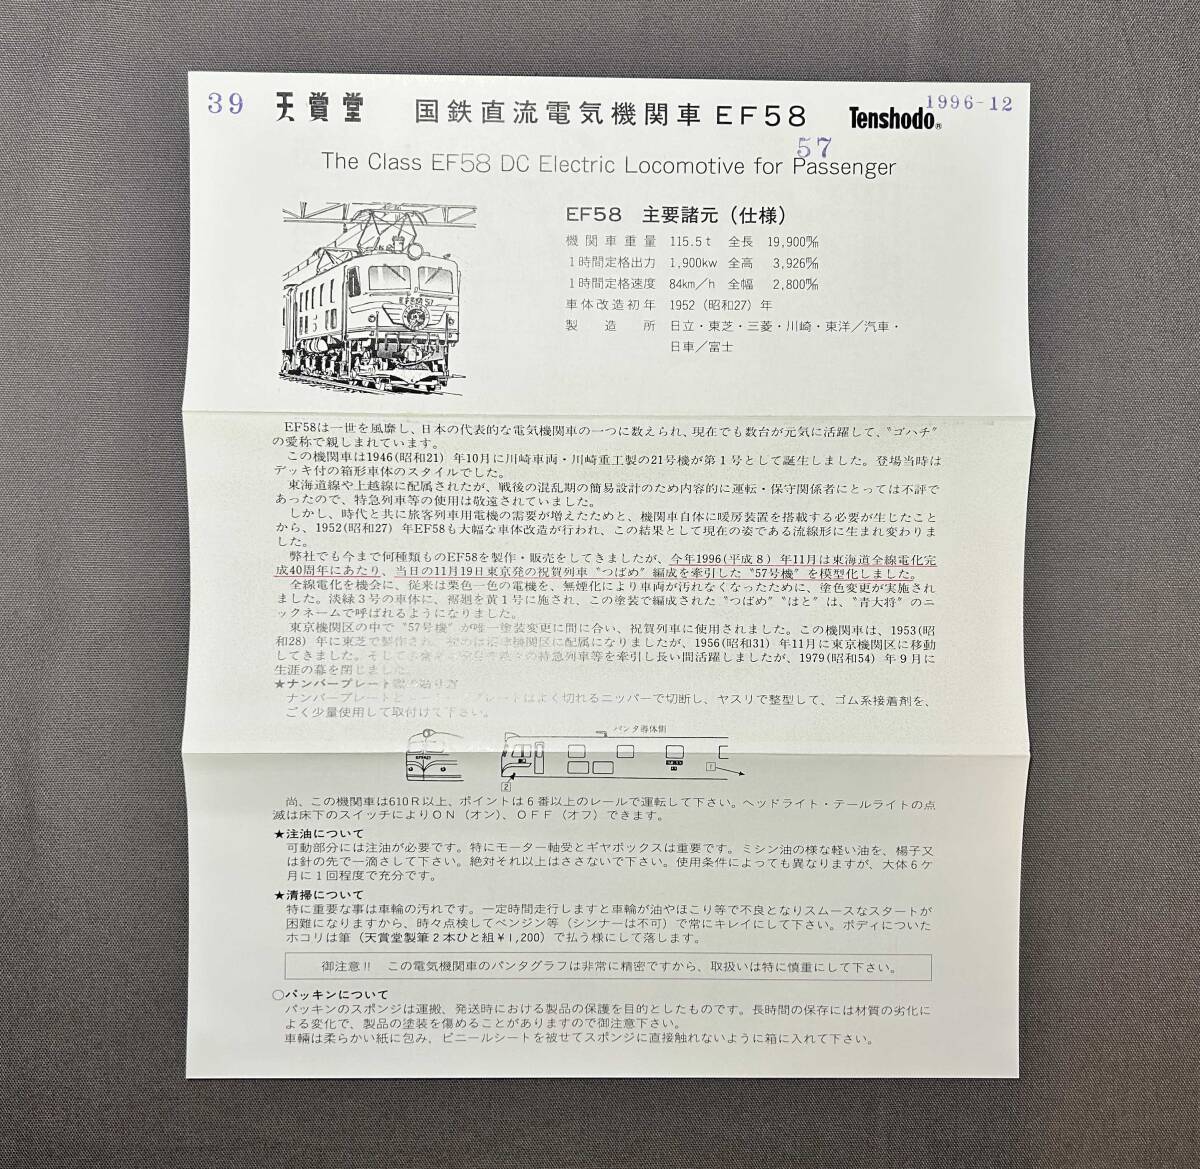 39 天賞堂 国鉄直流電気機関車 EF58 Tenshodo® 1996-12
57
The Class EF58 DC Electric Locomotive for Passenger
EF58 主要諸元（仕様）
機関車重量 115.5t 全長 19,900㎜
1時間定格出力 1,900kw 全高 3,926㎜
1時間定格速度 84km／h 全幅 2,800㎜
車体改造初年 1952（昭和27）年
製造所 日立・東芝・三菱・川崎・東洋／汽車・
日車／富士
EF58 57
EF58は一世を風靡し、日本の代表的な電気機関車の一つに数えられ、現在でも数台が元気に活躍して、〝ゴハチ〟
の愛称で親しまれています。
この機関車は1946(昭和21）年10月に川崎車両・川崎重工製の21号機が第1号として誕生しました。登場当時は
デッキ付の箱形車体のスタイルでした。
東海道線や上越線に配属されたが、戦後の混乱期の簡易設計のため内容的に運転・保守関係者にとっては不評で
あったので、特急列車等の使用は敬遠されていました。
しかし、時代と共に旅客列車用電機の需要が増えたためと、機関車自体に暖房装置を搭載する必要が生じたこと
から、1952(昭和27）年EF58も大幅な車体改造が行われ、この結果として現在の姿である流線形に生まれ変わりま
した。
弊社でも今まで何種類ものEF58を製作・販売をしてきましたが、今年1996(平成8）年11月は東海道全線電化完
成40周年にあたり、当日の11月19日東京発の祝賀列車〝つばめ〟編成を牽引した〝57号機〟を模型化しました。
全線電化を機会に、従来は栗色一色の電機を、無煙化により車両が汚れなくなったために、塗色変更が実施され
ました。淡緑3号の車体に、裾廻を黄1号に施され、この塗装で編成された〝つばめ〟〝はと〟は、〝青大将〟のニ
ックネームで呼ばれるようになりました。
東京機関区の中で〝57号機〟が唯一塗装変更に間に合い、祝賀列車に使用されました。この機関車は、1953(昭
和28）年に東芝で製作され、初めは沼津機関区に配属になりましたが、1956(昭和31）年11月に東京機関区に移動
してきました。そして の特急列車等を牽引し長い間活躍しましたが、1979(昭和54）年9月に
生涯の幕を閉じました。
★ナンバープレート
ナンバープレートと プレートはよく切れるニッパーで切断し、ヤスリで整型して、ゴム系接着剤を、
ごく少量使用して取付けて下さい。
パンタ導体側
1
2
尚、この機関車は610R以上、ポイントは6番以上のレールで運転して下さい。ヘッドライト・テールライトの点
滅は床下のスイッチによりON（オン）、OFF（オフ）できます。
★注油について
可動部分には注油が必要です。特にモーター軸受とギヤボックスは重要です。ミシン油の様な軽い油を、楊子又
は針の先で一滴さして下さい。絶対それ以上はささないで下さい。使用条件によっても異なりますが、大体6ケ
月に1回程度で充分です。
★清掃について
特に重要な事は車輪の汚れです。一定時間走行しますと車輪が油やほこり等で不良となりスムースなスタートが
困難になりますから、時々点検してベンジン等（シンナーは不可）で常にキレイにして下さい。ボディについた
ホコリは筆（天賞堂製筆2本ひと組¥1,200）で払う様にして落します。
御注意!! この電気機関車のパンタグラフは非常に精密ですから、取扱いは特に慎重にして下さい。
○パッキンについて
パッキンのスポンジは運搬、発送時における製品の保護を目的としたものです。長時間の保存には材質の劣化に
よる変化で、製品の塗装を傷めることがありますので御注意下さい。
車輛は柔らかい紙に包み、ビニールシートを被せてスポンジに直接触れないように箱に入れて下さい。